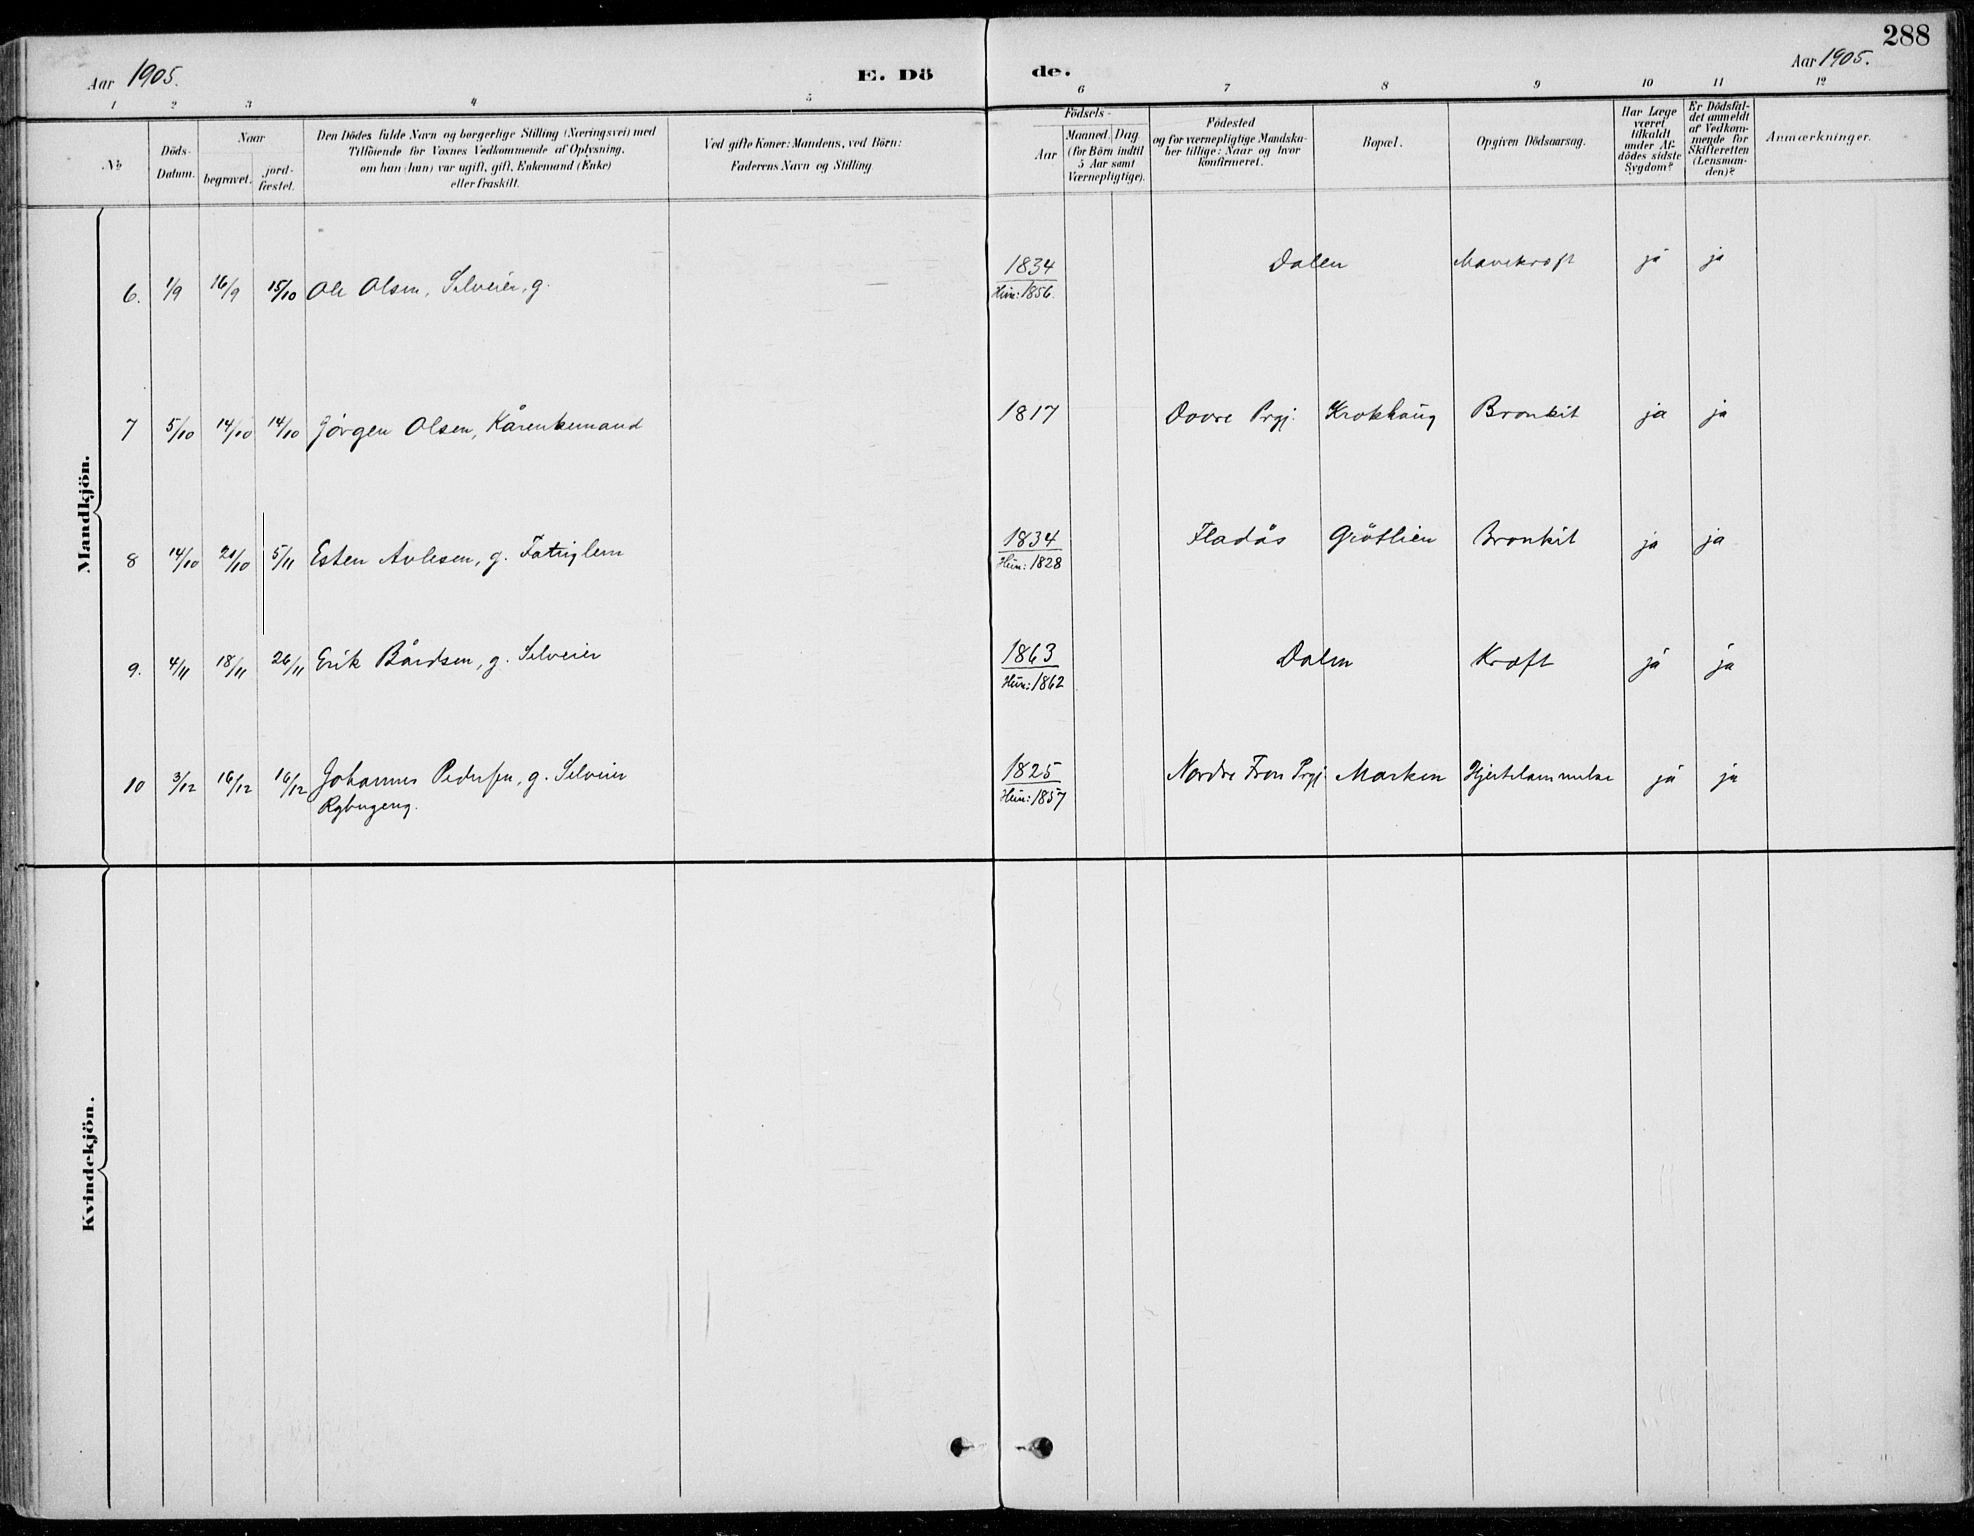 288
Aar 1905.
E. Dö de.
Aar 1905.
1 2 3 4 5 6 7 8 9 10 11 12
No
Döds-
Datum.
Naar
begravet.
jord-
fæstet.
Den Dödes fulde Navn og borgerlige Stilling (Næringsvei) med
Tilföiende for Voxnes Vedkommende af Oplysning,
om han (hun) var ugift, gift, Enkemand (Enke)
eller fraskilt.
Ved gifte Koner: Mandens, ved Börn:
Faderens Navn og Stilling.
Födsels-
Aar
Maaned. Dag.
(for Börn indtil
5 Aar samt
Værnepligtige).
Födested
og for værnepligtige Mandska-
ber tillige: Naar og hvor
konfirmeret.
Bopæl.
Opgiven Dödsaarsag.
Har Læge
været
tilkaldt
under Af-
dödes sidste
Sygdom?
Er Dödsfal-
det anmeldt
af Vedkom-
mende for
Skifteretten
(Lensman-
den)?
Anmærkninger.
Mandkjön.
6. 1/9 16/9 15/10 Ole Olsen, Selveier, g. 1834 Dalen Mavekræft ja ja
Hun: 1856.
7 5/10 14/10 14/10 Jörgen Olsen, Kårenkemand 1817 Dovre Prgj. Krokhaug Bronkit ja ja
8 14/10 21/10 5/11 Esten Avlesen, g. Fattiglem 1834 Fladås Grötlien Bronkit ja ja
Hun: 1828
9. 4/11 18/11 26/11 Erik Bårdsen, g. Selveier 1863 Dalen Kræft ja ja
Hun: 1862
10 3/12 16/12 16/12 Johannes Pedersen, g. Selveier 1825 Nordre Fron Prgj. Marken Hjertelammelse ja ja
Hun: 1857
Kvindekjön.